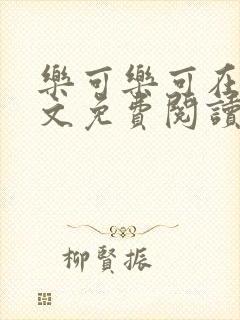 樂可樂可在
文免費閱讀
柳賢振